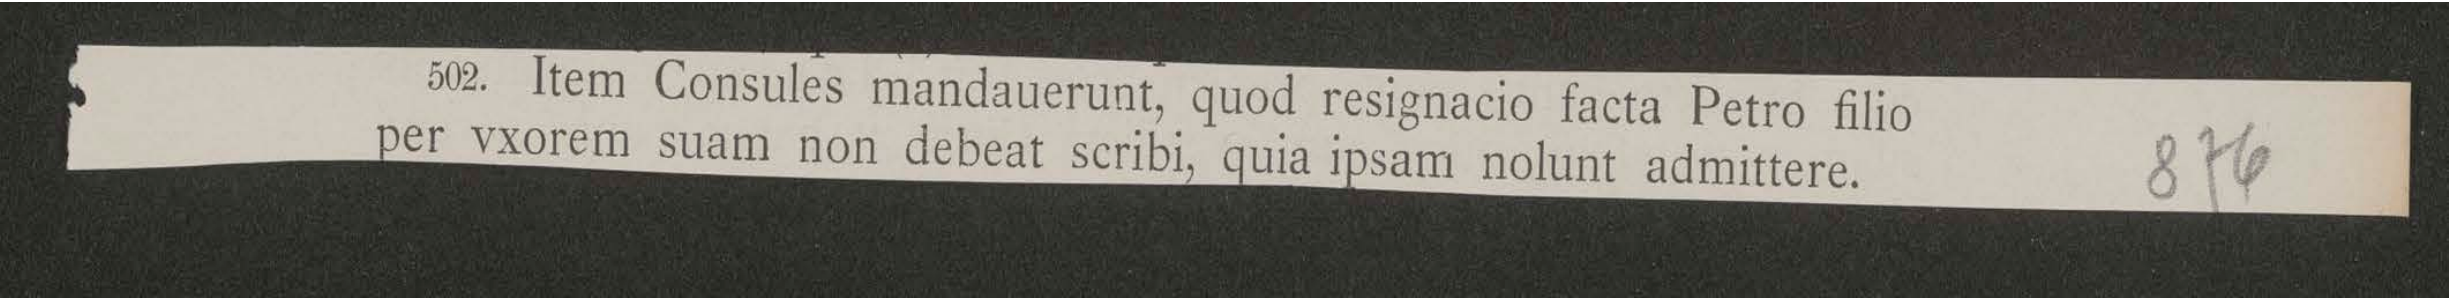 502. Item Consules mandauerunt, quod resignacio facta Petro filio
per vxorem suam non debeat scribi, quia ipsam nolunt admittere.
876